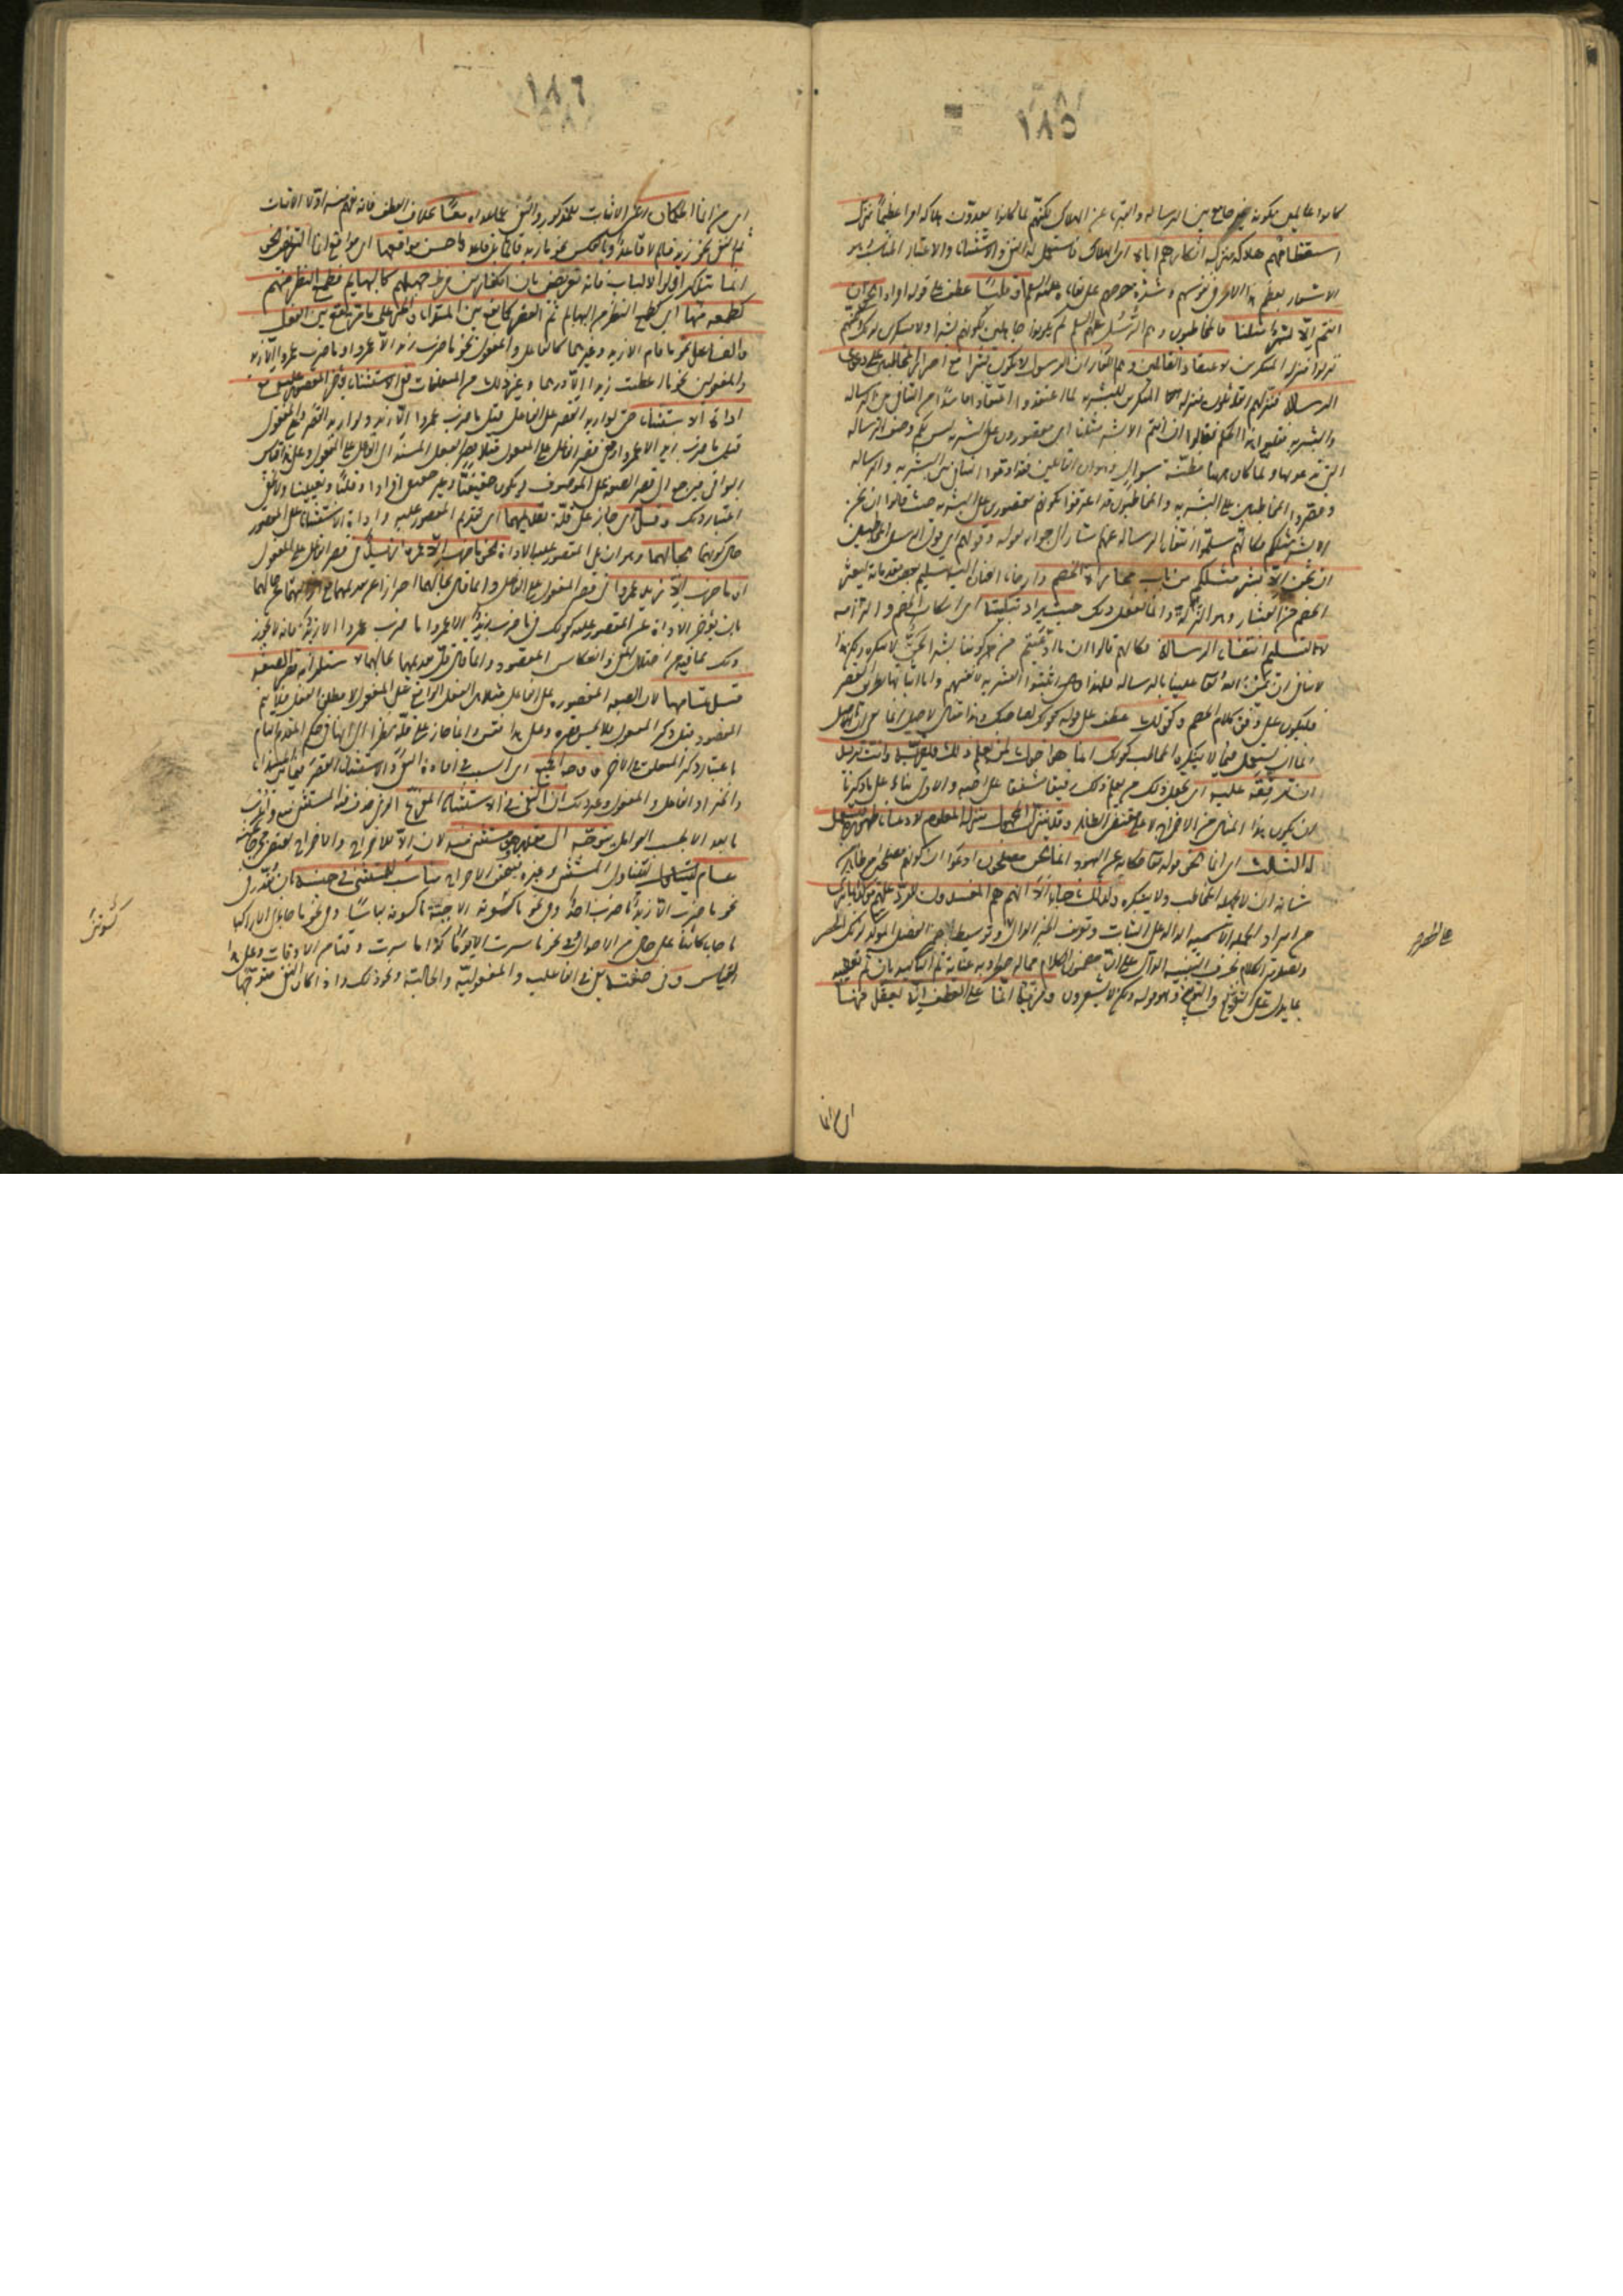 ١٨٥
كانوا عالمين بكونه غير جامع بين الرسالة والتبرى عن الهلاك لكنهم لما كانوا يعدون هلاكه امرا عظيما نزل
استعظامهم هلاكه منزلة انكارهم اياه اى الهلاك فاستعمل له النفى والاستثناء والاعتبار المناسب هو
الاشعار بعظم هذا الامر فى نفوسهم وشدة حرصهم على بقائه عليه السلم او قلبا عطف على قوله افرادا نحو ان
انتم الا بشر مثلنا فالمخاطبون وهم الرسل عليهم السلم لم يكونوا جاهلين بكونهم بشرا ولا منكرين لذلك لكنهم
نزلوا منزلة المنكرين لاعتقاد القائلين وهم الكفار ان الرسول لا يكون بشرا مع اصرار المخاطبين على دعوى
الرسالة فنزلهم القائلون منزلة المنكرين للبشرية لما اعتقدوا اعتقادا فاسدا من التنافى بين الرسالة
والبشرية فقلبوا هذا الحكم فقالوا ان انتم الا بشر مثلنا اى مقصورون على البشرية ليس لكم وصف الرسالة
التى تدعونها ولما كان ههنا مظنة سؤال وهو ان القائلين قد ادعوا التنافى بين البشرية والرسالة
وقصروا المخاطبين على البشرية والمخاطبون قد اعترفوا بكونهم مقصورين على البشرية حيث قالوا ان نحن
الا بشر مثلكم فكانهم سلموا انتفاء الرسالة عنهم اشار الى جوابه بقوله وقولهم اى قول الرسل المخاطبين
ان نحن الا بشر مثلكم من باب مجاراة الخصم وارخاء العنان اليه بتسليم بعض مقدماته ليعثر
الخصم من العثار وهو الزلة وانما يفعل ذلك حيث يراد تبكيته اى اسكات الخصم والزامه
لا لتسليم انتفاء الرسالة فكانهم قالوا ان ما ادعيتم من كوننا بشرا فحق لا ننكره ولكن هذا
لا ينافى ان يمن الله تعا علينا بالرسالة فلهذا اثبتوا البشرية لانفسهم واما اثباتها بطريق القصر
فليكون على وفق كلام الخصم وكقولك عطف على قوله كقولك لصاحبك وهذا مثال لاصل انما اى الاصل فى
انما ان يستعمل فيما لا ينكره المخاطب كقولك انما هو اخوك لمن يعلم ذلك ويقر به وانت تريد
ان ترققه عليه اى تجعل ذلك من يعلم ذلك رقيقا مشفقا على اخيه والاولى بناء على ما ذكرنا
ان يكون هذا المثال من الاخراج لا على مقتضى الظاهر وقد ينزل المجهول منزلة المعلوم لادعاء ظهوره فيستعمل
له الثالث اى انما نحو قوله تعا حكاية عن اليهود انما نحن مصلحون ادعوا ان كونهم مصلحين امر ظاهر من
شانه ان لا يجهله المخاطب ولا ينكره ولذلك جاء الا انهم هم المفسدون للرد عليهم مؤكدا بما ترى
من ايراد الجملة الاسمية الدالة على الثبات وتعريف الخبر الدال وتوسيط ضمير الفصل المؤكد لذلك
على الحصر
وتصدير الكلام بحرف التنبيه الدال على ان مضمون الكلام مما له خطر وبه عناية ثم التاكيد بان ثم تعقيبه
بما يدل على التقريع والتوبيخ وهو قوله ولكن لا يشعرون ومزية انما على العطف انه يعقل منها
اى من انما
١٨٦
اى من انما الحكمان اعنى الاثبات للمذكور والنفى عما عداه معا بخلاف العطف فانه يفهم منه اولا الاثبات
ثم النفى نحو زيد قائم لا قاعد وبالعكس نحو ما زيد قائما بل قاعدا واحسن مواقعها اى مواقع انما التعريض نحو
انما يتذكر اولوا الالباب فانه تعريض بان الكفار من فرط جهلهم كالبهايم فطمع النظر منهم
كطمعه منها اى كطمع النظر من البهايم ثم القصر كما يقع بين المبتداء والخبر على ما مر يقع بين الفعل
والفاعل نحو ما قام الا زيد وغيرهما كالفاعل والمفعول نحو ما ضرب زيد الا عمروا وما ضرب عمروا الا زيد
والمفعولين نحو ما اعطيت زيدا الا درهما وغير ذلك من المتعلقات ففى الاستثناء يؤخر المقصور عليه مع
اداة الاستثناء حتى لو اريد القصر على الفاعل قيل ما ضرب عمروا الا زيد ولو اريد القصر على المفعول
قيل ما ضرب زيد الا عمروا ومعنى قصر الفاعل على المفعول مثلا قصر الفعل المسند الى الفاعل على المفعول وعلى هذا قياس
البواقى فيرجع الى قصر الصفة على الموصوف او يكون حقيقيا وغير حقيقى افرادا وقلبا وتعيينا ولا يخفى
اعتبار ذلك وقل اى جاز على قلة تقديمهما اى تقديم المقصور عليه واداة الاستثناء على المقصور
حال كونهما بحالهما وهو ان يلى المقصور عليه الاداة نحو ما ضرب الا عمروا زيد فى قصر الفاعل على المفعول
او ما ضرب الا زيد عمروا فى قصر المفعول على الفاعل وانما قال بحالهما احترازا عن تقديمهما مع ازالتهما عن حالهما
بان يؤخر الاداة عن المقصور عليه كقولك فى ما ضرب زيد الا عمروا ما ضرب عمروا الا زيد فانه لا يجوز
ذلك لما فيه من اختلال المعنى وانعكاس المقصود وانما قل تقديمهما بحالهما لاستلزامه قصر الصفة
قبل تمامها لان الصفة المقصورة على الفاعل مثلا هى الفعل الواقع على المفعول لا مطلق الفعل فلا يتم
المقصود قبل ذكر المفعول فلا يحسن قصره وعلى هذا فقس وانما جاز على قلة نظرا الى انها فى حكم التام
باعتبار ذكر المتعلق فى الاخر ووجه الجميع اى السبب فى افادة النفى والاستثناء القصر فيما بين المبتداء
والخبر او الفاعل والمفعول وغير ذلك ان النفى فى الاستثناء المفرغ الذى حذف فيه المستثنى منه واعرب
ما بعد الا بحسب العوامل يتوجه الى مقدر هو مستثنى منه لان الا للاخراج والاخراج يقتضى مخرجا منه
عام ليتناول المستثنى وغيره فيتحقق الاخراج مناسب للمستثنى فى جنسه بان يقدر فى
نحو ما ضرب الا زيد ما ضرب احد وفى نحو ما كسوته الا جبة ما كسوته لباسا وفى نحو ما جاءنى الا راكبا
ما جاء كائنا على حال من الاحوال وفى نحو ما سرت الا يوم الجمعة ما سرت وقتا من الاوقات وعلى هذا
القياس وفى صفته يعنى فى الفاعلية والمفعولية والحالية ونحو ذلك واذا كان النفى متوجها